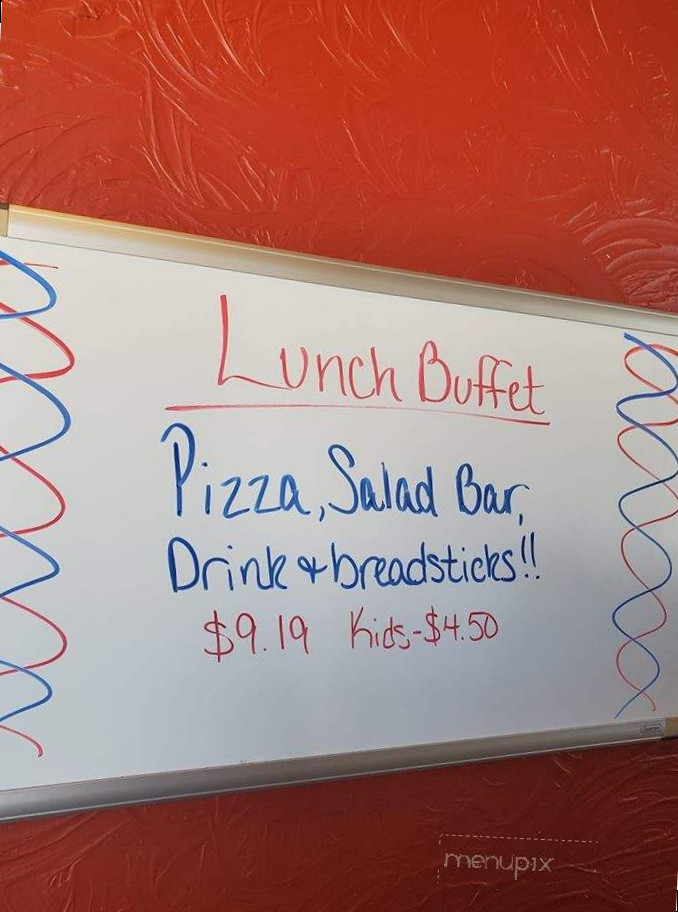 Lunch Buffet
Pizza, Salad Bar,
Drink & breadsticks!!
$9.19 Kids-$4.50
menupix